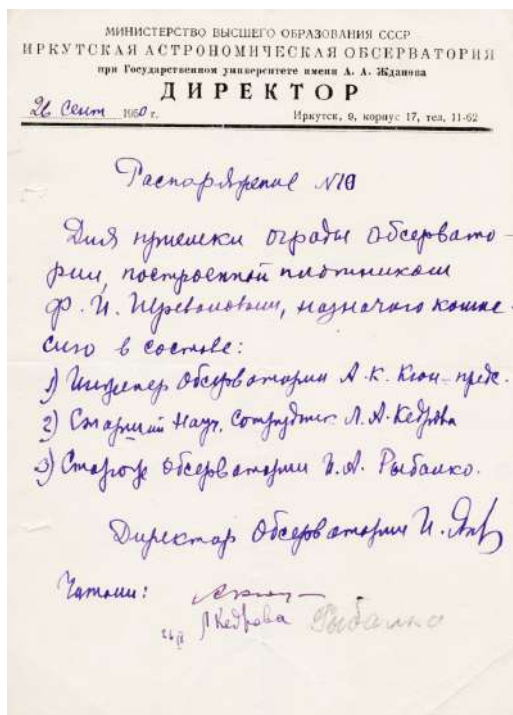 МИНИСТЕРСТВО ВЫСШЕГО ОБРАЗОВАНИЯ СССР
ИРКУТСКАЯ АСТРОНОМИЧЕСКАЯ ОБСЕРВАТОРИЯ
при Государственном университете имени А. А. Жданова
ДИРЕКТОР
26 Сент 1950 г. Иркутск, 9, корпус 17, тел. 11-62
Распоряжение №10
Для приемки ограды обсервато-
рии, построенной плотником
Ф. И. назначаю комис-
сию в составе:
1) Инженер обсерватории А. К. Кюн - предс.
2) Старший науч. сотрудник Л. А. Кедрова
3) Сторож обсерватории И. А. Рыбалко.
Директор Обсерватории И. Яз
Читали:
Л Кедрова Рыбалко